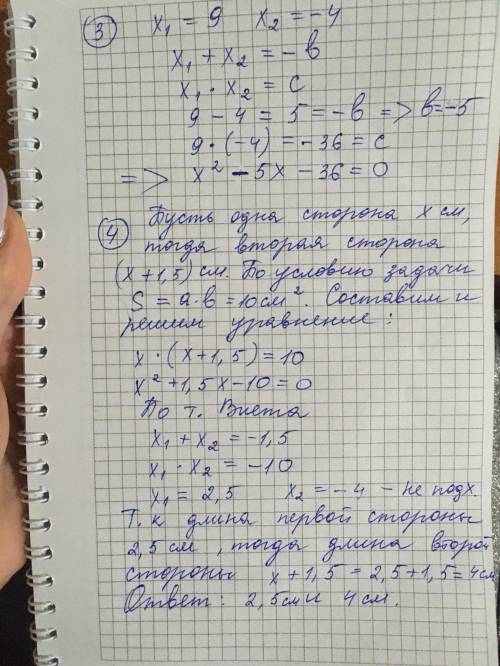 ③ x₁ = 9 x₂ = -4
x₁ + x₂ = -в
x₁ · x₂ = c
9 - 4 = 5 = -в => в=-5
9 · (-4) = -36 = c
=> x² - 5x - 36 = 0
④ Пусть одна сторона x см,
тогда вторая сторона
(x+1,5) см. По условию задачи
S = a·в = 10см². Составим и
решим уравнение:
x · (x+1,5) = 10
x² + 1,5x - 10 = 0
По т. Виета
x₁ + x₂ = -1,5
x₁ · x₂ = -10
x₁ = 2,5 x₂ = -4 - не подх.
Т. к длина первой стороны
2,5 см, тогда длина второй
стороны x + 1,5 = 2,5+1,5=4см
Ответ: 2,5см и 4 см.